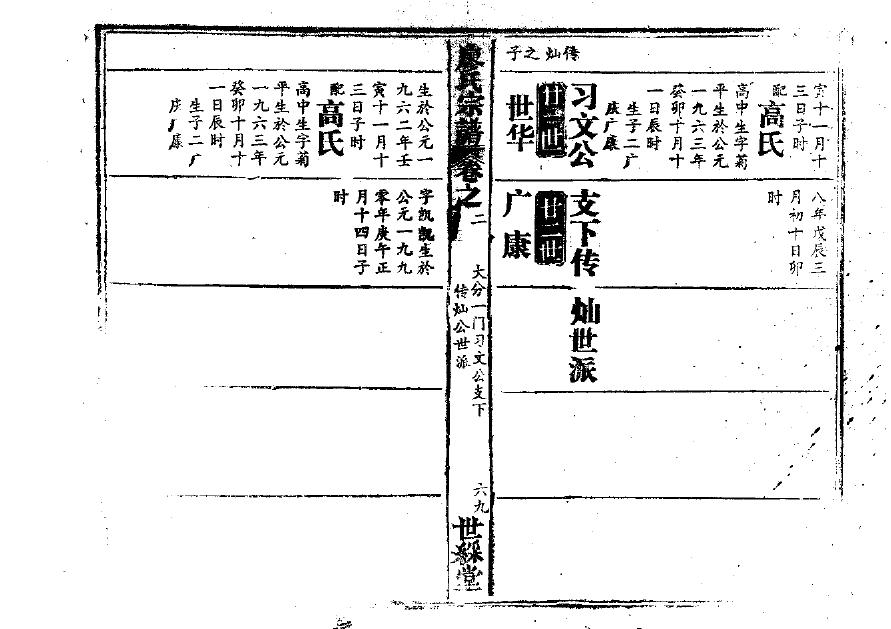 传灿之子
寅十一月十
三日子时
配高氏
高中生字菊
平生於公元
一九六三年
癸卯十月十
一日辰时
生子二广
庆广康
八年戊辰三
月初十日卯
时
习文公支下传灿世派
世华
廿二世
广康
廖氏宗譜卷之二
大分一门习文公支下
传灿公世派
六九
世綵堂
生於公元一
九六二年壬
寅十一月十
三日子时
配高氏
高中生字菊
平生於公元
一九六三年
癸卯十月十
一日辰时
生子二广
庆广康
字凯凯生於
公元一九九
零年庚午正
月十四日子
时